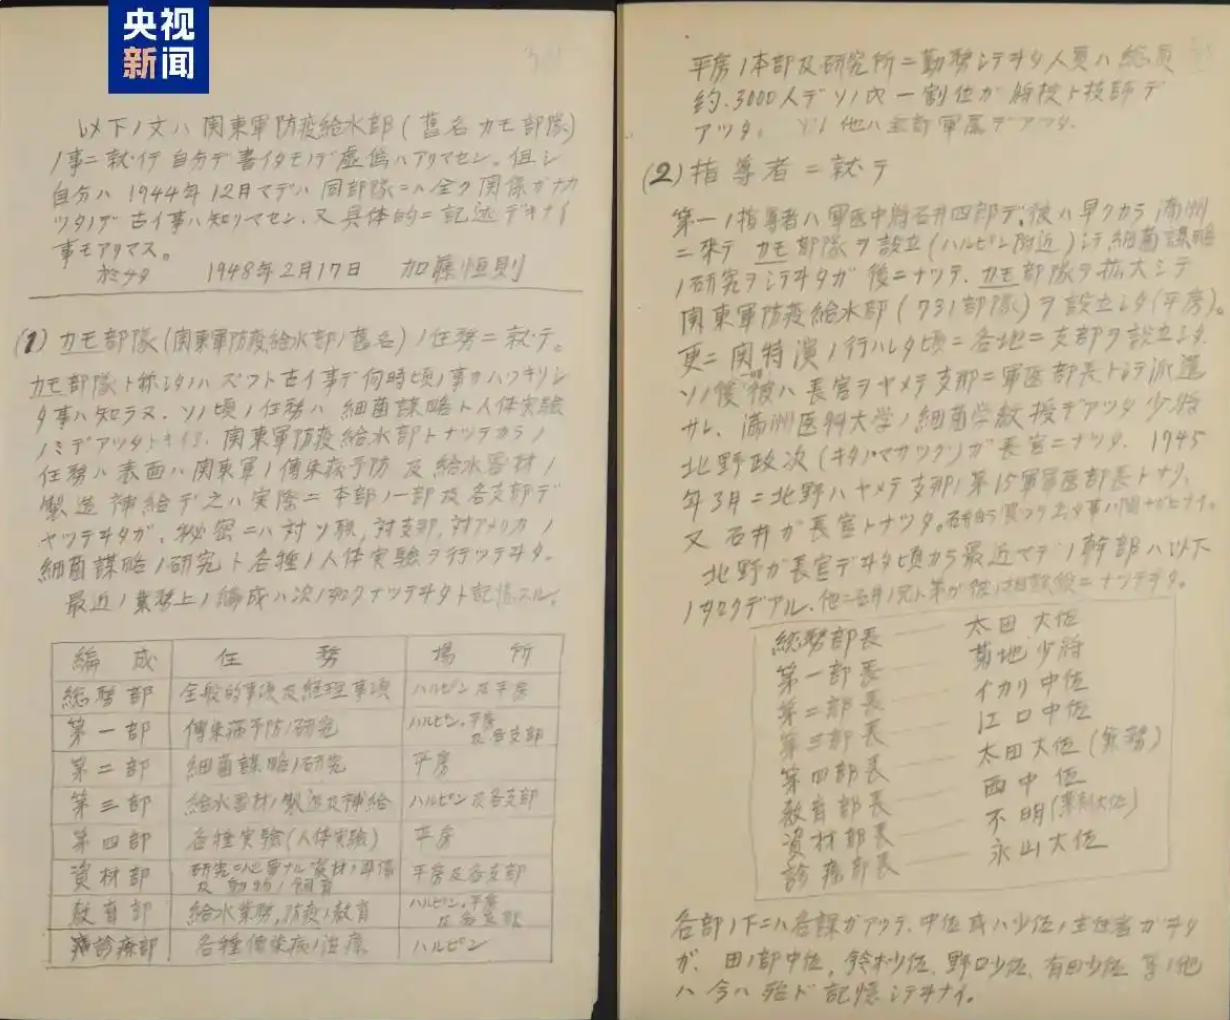 央视
新闻
以下ノ文ハ関東軍防疫給水部(舊名カモ部隊)
ノ事ニ就イテ自分デ書イタモノデ虚偽ハアリマセン。但シ
自分ハ1944年12月マデハ同部隊ニハ全ク関係ガナカ
ツタノデ古イ事ハ知リマセン.又具体的ニ記述デキナイ
事モアリマス。
於チタ 1948年2月17日 加藤恒則
(1) カモ部隊(関東軍防疫給水部ノ舊名)ノ任務ニ就テ。
カモ部隊ト称シタノハズツト古イ事デ何時頃ノ事カハツキリシ
タ事ハ知ラヌ.ソノ頃ノ任務ハ細菌謀略ト人体実験
ノミデアツタ 関東軍防疫給水部トナツテカラノ
任務ハ表面ハ関東軍ノ傳染病予防及給水器材ノ
製造補給デ之ハ実際ニ本部ノ一部及各支部デ
ヤツテヰタガ、秘密ニハ対ソ聯,対支那,対アメリカノ
細菌謀略ノ研究ト各種ノ人体実験ヲ行ツテヰタ。
最近ノ業務上ノ編成ハ次ノ如クナツテヰタト記憶スル.
編成 任務 場所
総務部 全般的事項及経理事項 ハルピン及平房
第一部 傳染病予防ノ研究 ハルピン,平房及各支部
第二部 細菌謀略ノ研究 平房
第三部 給水器材ノ製造及補給 ハルピン及各支部
第四部 各種実験(人体実験) 平房
資材部 研究ニ必要ナル資材ノ準備及動物ノ飼育 平房及各支部
教育部 給水業務,防疫ノ教育 ハルピン,平房及各支部
診療部 各種傳染病ノ治療 ハルピン
平房ノ本部及研究所ニ勤務シテヰタ人員ハ総員
約.3000人デソノ内一割位ガ将校ト技師デ
アツタ。ソノ他ハ全部軍属デアツタ.
(2) 指導者ニ就テ
第一ノ指導者ハ軍医中将石井四郎デ,彼ハ早クカラ満洲
ニ来テカモ部隊ヲ設立(ハルピン附近)シテ細菌謀略
ノ研究ヲシテヰタガ後ニナツテ,カモ部隊ヲ拡大シテ
関東軍防疫給水部(731部隊)ヲ設立シタ(平房)。
更ニ関特演ノ行ハレタ頃ニ各地ニ支部ヲ設立シタ.
ソノ後彼ハ長官ヲヤメテ支那ニ軍医部長トシテ派遣
サレ、満洲医科大学ノ細菌学教授デアツタ少将
北野政次(キタノマサツグ)ガ長官ニナツタ. 1945
年3月ニ北野ハヤメテ支那ノ第15軍軍医部長トナリ、
又石井ガ長官トナツタ。
北野ガ長官デヰタ頃カラ最近マデノ幹部ハ以下
ノ如クデアル.他ニ石井ノ兄ト弟ガ彼ノ相談役ニナツテヰタ。
総務部長 太田大佐
第一部長 菊地少将
第二部長 イカリ中佐
第三部長 江口中佐
第四部長 太田大佐(兼務)
教育部長 西中佐
資材部長 不明(薬剤大佐)
診療部長 永山大佐
各部ノ下ニハ各課ガアツテ、中佐或ハ少佐ノ主任者ガヰタ
ガ、田ノ部中佐,鈴木少佐,野口少佐,有田少佐等ノ他
ハ今ハ殆ド記憶シテヰナイ。